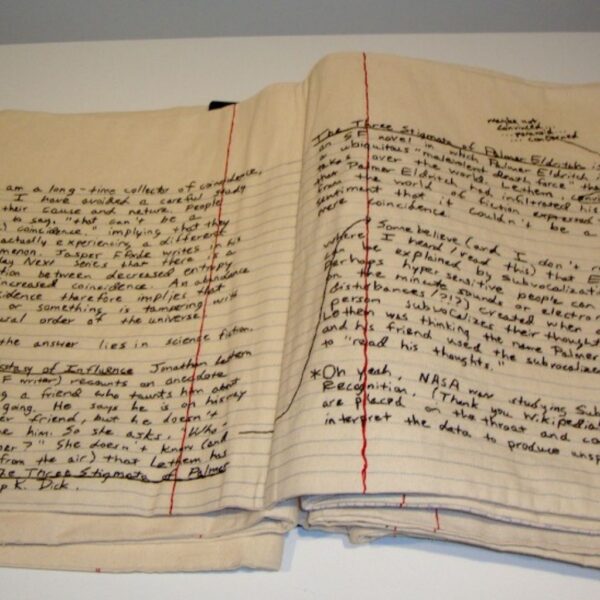 am a long-time collector of coincidence,
I have avoided a careful study
their cause and nature. People
to say, "that can't be a
coincidence." implying that they
actually experiencing a different
menon. Jasper Fforde writes in his
day Next series that there is a
tion between decreased entropy
increased coincidence. An abundance
cidence therefore implies that
or something is tampering with
ural order of the universe.
the answer lies in science fiction.
cstasy of Influence Jonathan Lethem
F writer) recounts an anecdote
g a friend who taunts him about
going. He says he is on his way
er friend, but he doesn't
me him. So she asks, "Who,
mer?" She doesn't know (and
from the air) that Lethem has
The Three Stigmata of Palmer
p K. Dick.
maybe not
convinced...
...paranoid...
...concerned
The Three Stigmata of Palmer Eldritch is
an SF novel in which Palmer Eldritch
a ubiquitous "malevolent death force" tha
takes over the world. Lethem,
that Palmer Eldritch had infiltrated his
from the world of fiction expressed
sentiment that it couldn't be a
mere coincidence.
Some believe (and I don't
where I heard/read this) that E
can be explained by subvocalizati
Perhaps hyper sensitive people can
on the minute sounds or electro
disturbances (?!?) created when a
person subvocalizes their thought
Lethem was thinking the name Palmer
and his friend used the subvocalize
to "read his thoughts."
*Oh yeah, NASA was studying Sub
Recognition. (Thank you Wikipedia
are placed on the throat and co
interpret the data to produce unsp